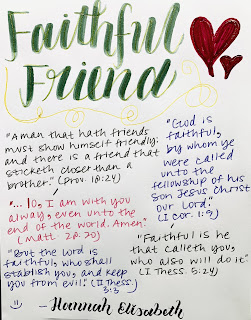 Faithful
Friend
"A man that hath friends
must show himself friendly:
and there is a friend that
sticketh closer than a
brother." (Prov. 18:24)
"... lo, I am with you
alway, even unto the
end of the world. Amen."
(Matt. 28:20)
"But the Lord is
faithful, who shall
stablish you, and keep
you from evil." (II Thess.
3:3
"God is
faithful,
by whom ye
were called
unto the
fellowship of his
Son Jesus Christ
our Lord."
(I Cor. 1:9)
"Faithful is he
that calleth you,
who also will do it"
(I Thess. 5:24)
- Hannah Elisabeth